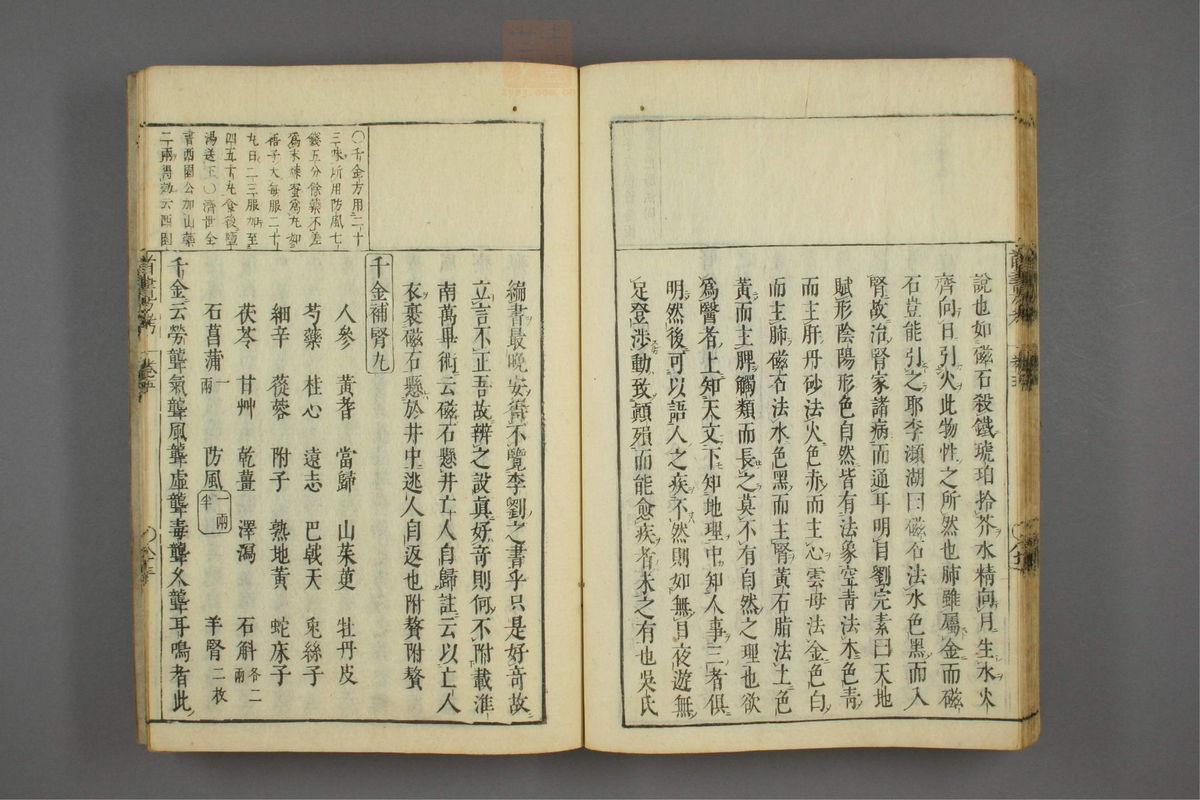 說也如磁石殺鐵琥珀拾芥水精向月生水火
齊向日引火此物性之所然也肺雖屬金而磁
石豈能引之耶李瀕湖曰磁石法水色黑而入
腎故治腎家諸病而通耳明目劉完素曰天地
賦形陰陽形色自然皆有法象空青法木色青
而主肝丹砂法火色赤而主心雲母法金色白
而主肺磁石法水色黑而主腎黃石脂法土色
黃而主脾觸類而長之莫不有自然之理也欲
爲醫者上知天文下知地理中知人事三者俱
明然後可以語人之疾不然則如無目夜遊無
足登涉動致顛殞而能愈疾者未之有也吳氏
編書最晚安得不覽李劉之書乎只是好奇故
立言不正吾故辨之設眞好奇則何不附載淮
南萬畢術云磁石懸井亡人自歸註云以亡人
衣裹磁石懸於井中逃人自返也附贅附贅
千金補腎丸
人參 黃耆 當歸 山茱萸 牡丹皮
芍藥 桂心 遠志 巴戟天 兎絲子
細辛 蓯蓉 附子 熟地黃 蛇床子
茯苓 甘艸 乾薑 澤瀉 石斛各二兩
石菖蒲一兩 防風一兩半 羊腎二枚
千金云勞聾氣聾風聾虛聾毒聾久聾耳鳴者此
〇千金方用二十
三味所用防風七
錢五分餘藥不差
爲末煉蜜爲丸如
梧子大每服二十
丸日二三服加至
四五十丸食後鹽
湯送下〇濟世全
書西園公加山藥
二兩得效云西園